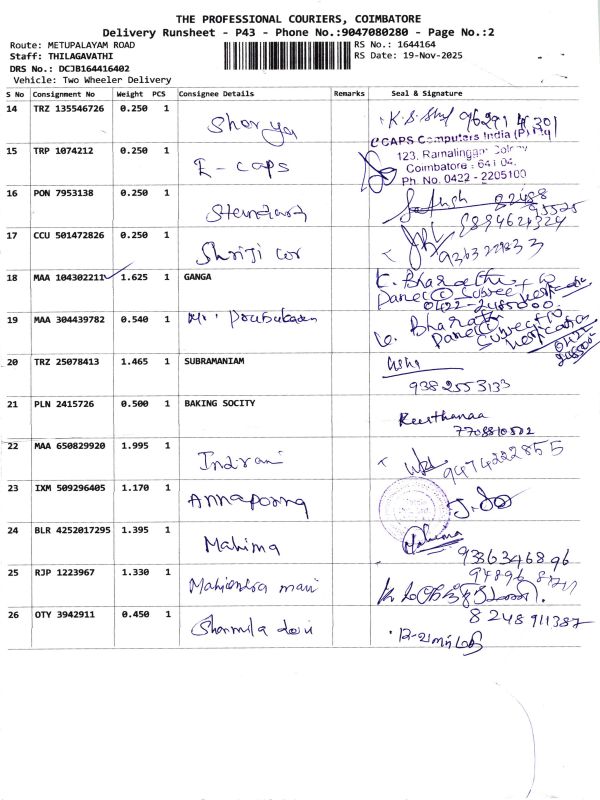 THE PROFESSIONAL COURIERS, COIMBATORE
Delivery Runsheet - P43 - Phone No.:9047080280 - Page No.:2
Route: METUPALAYAM ROAD RS No.: 1644164
Staff: THILAGAVATHI RS Date: 19-Nov-2025
DRS No.: DCJB164416402
Vehicle: Two Wheeler Delivery
S No Consignment No Weight PCS Consignee Details Remarks Seal & Signature
14 TRZ 135546726 0.250 1 Shorya
CAPS Computers India (P)
15 TRP 1074212 0.250 1 E-caps 123, Ramalingam Colony
Coimbatore - 641 04.
Ph. No. 0422 - 2205100
16 PON 7953138 0.250 1 Standard
8894624324
17 CCU 501472826 0.250 1 Shriji cor
9363229833
18 MAA 104302211 1.625 1 GANGA K. Bharathi
0422-2485000
19 MAA 304439782 0.540 1 Mr. Bharathi
20 TRZ 25078413 1.465 1 SUBRAMANIAM Usha
9382553133
21 PLN 2415726 0.500 1 BAKING SOCITY Keerthanaa
7708810502
22 MAA 650829920 1.995 1 Indrani 9474222855
23 IXM 509296405 1.170 1 Annaporna
24 BLR 4252017295 1.395 1 Mahima Mahima
9336346896
25 RJP 1223967 1.330 1 Mahendra mani
26 OTY 3942911 0.450 1 Sharmila devi 8248911387